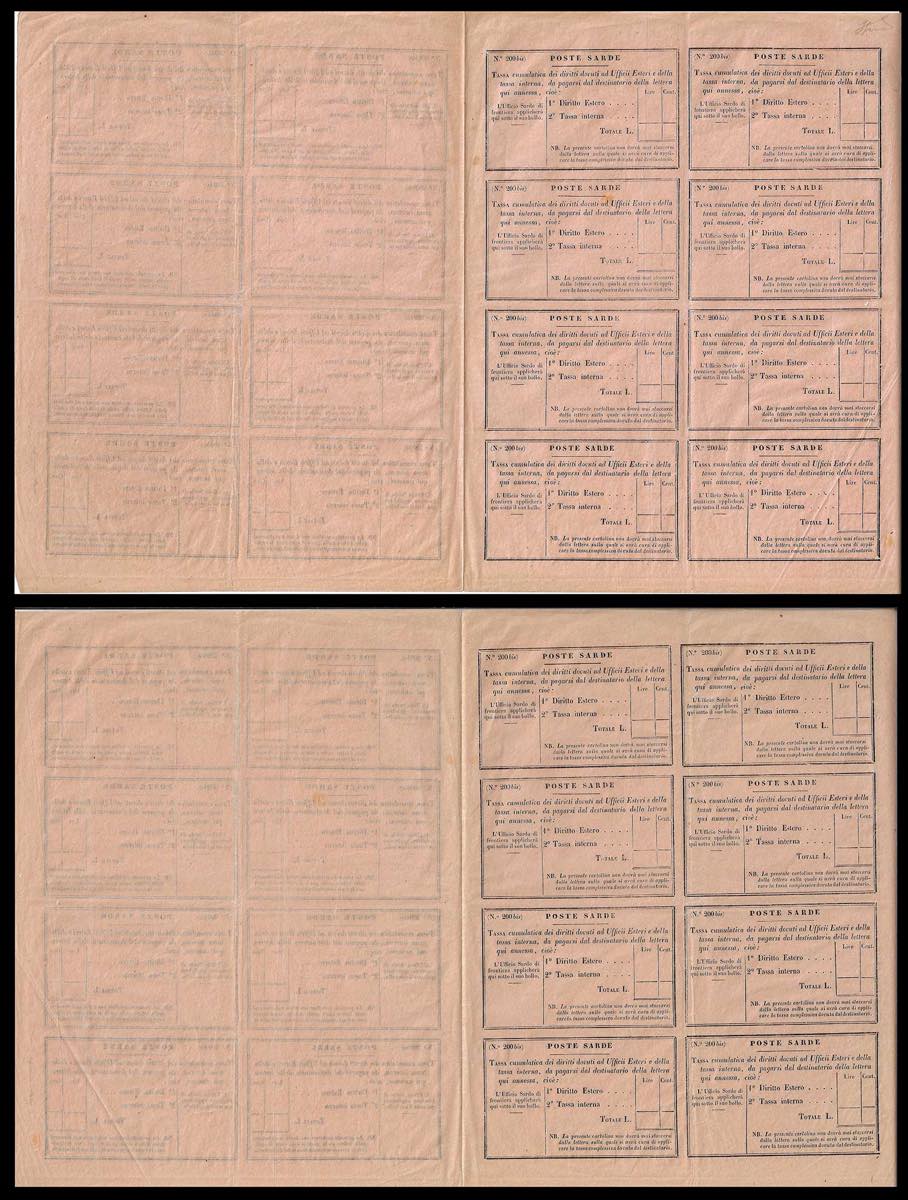 (N.º 200 bis) POSTE SARDE
TASSA cumulativa dei diritti dovuti ad Ufficii Esteri e della
tassa interna, da pagarsi dal destinatario della lettera
qui annessa, cioè: Lire Cent.
L'Ufficio Sardo di
frontiera applicherà
qui sotto il suo bollo.
1º Diritto Estero . . . .
2º Tassa interna . . . .
TOTALE L.
NB. La presente cartolina non dovrà mai staccarsi
dalla lettera sulla quale si avrà cura di appli-
care la tassa complessiva dovuta dal destinatario.
(N.º 200 bis) POSTE SARDE
TASSA cumulativa dei diritti dovuti ad Ufficii Esteri e della
tassa interna, da pagarsi dal destinatario della lettera
qui annessa, cioè: Lire Cent.
L'Ufficio Sardo di
frontiera applicherà
qui sotto il suo bollo.
1º Diritto Estero . . . .
2º Tassa interna . . . .
TOTALE L.
NB. La presente cartolina non dovrà mai staccarsi
dalla lettera sulla quale si avrà cura di appli-
care la tassa complessiva dovuta dal destinatario.
(N.º 200 bis) POSTE SARDE
TASSA cumulativa dei diritti dovuti ad Ufficii Esteri e della
tassa interna, da pagarsi dal destinatario della lettera
qui annessa, cioè: Lire Cent.
L'Ufficio Sardo di
frontiera applicherà
qui sotto il suo bollo.
1º Diritto Estero . . . .
2º Tassa interna . . . .
TOTALE L.
NB. La presente cartolina non dovrà mai staccarsi
dalla lettera sulla quale si avrà cura di appli-
care la tassa complessiva dovuta dal destinatario.
(N.º 200 bis) POSTE SARDE
TASSA cumulativa dei diritti dovuti ad Ufficii Esteri e della
tassa interna, da pagarsi dal destinatario della lettera
qui annessa, cioè: Lire Cent.
L'Ufficio Sardo di
frontiera applicherà
qui sotto il suo bollo.
1º Diritto Estero . . . .
2º Tassa interna . . . .
TOTALE L.
NB. La presente cartolina non dovrà mai staccarsi
dalla lettera sulla quale si avrà cura di appli-
care la tassa complessiva dovuta dal destinatario.
(N.º 200 bis) POSTE SARDE
TASSA cumulativa dei diritti dovuti ad Ufficii Esteri e della
tassa interna, da pagarsi dal destinatario della lettera
qui annessa, cioè: Lire Cent.
L'Ufficio Sardo di
frontiera applicherà
qui sotto il suo bollo.
1º Diritto Estero . . . .
2º Tassa interna . . . .
TOTALE L.
NB. La presente cartolina non dovrà mai staccarsi
dalla lettera sulla quale si avrà cura di appli-
care la tassa complessiva dovuta dal destinatario.
(N.º 200 bis) POSTE SARDE
TASSA cumulativa dei diritti dovuti ad Ufficii Esteri e della
tassa interna, da pagarsi dal destinatario della lettera
qui annessa, cioè: Lire Cent.
L'Ufficio Sardo di
frontiera applicherà
qui sotto il suo bollo.
1º Diritto Estero . . . .
2º Tassa interna . . . .
TOTALE L.
NB. La presente cartolina non dovrà mai staccarsi
dalla lettera sulla quale si avrà cura di appli-
care la tassa complessiva dovuta dal destinatario.
(N.º 200 bis) POSTE SARDE
TASSA cumulativa dei diritti dovuti ad Ufficii Esteri e della
tassa interna, da pagarsi dal destinatario della lettera
qui annessa, cioè: Lire Cent.
L'Ufficio Sardo di
frontiera applicherà
qui sotto il suo bollo.
1º Diritto Estero . . . .
2º Tassa interna . . . .
TOTALE L.
NB. La presente cartolina non dovrà mai staccarsi
dalla lettera sulla quale si avrà cura di appli-
care la tassa complessiva dovuta dal destinatario.
(N.º 200 bis) POSTE SARDE
TASSA cumulativa dei diritti dovuti ad Ufficii Esteri e della
tassa interna, da pagarsi dal destinatario della lettera
qui annessa, cioè: Lire Cent.
L'Ufficio Sardo di
frontiera applicherà
qui sotto il suo bollo.
1º Diritto Estero . . . .
2º Tassa interna . . . .
TOTALE L.
NB. La presente cartolina non dovrà mai staccarsi
dalla lettera sulla quale si avrà cura di appli-
care la tassa complessiva dovuta dal destinatario.
(N.º 200 bis) POSTE SARDE
TASSA cumulativa dei diritti dovuti ad Ufficii Esteri e della
tassa interna, da pagarsi dal destinatario della lettera
qui annessa, cioè: Lire Cent.
L'Ufficio Sardo di
frontiera applicherà
qui sotto il suo bollo.
1º Diritto Estero . . . .
2º Tassa interna . . . .
TOTALE L.
NB. La presente cartolina non dovrà mai staccarsi
dalla lettera sulla quale si avrà cura di appli-
care la tassa complessiva dovuta dal destinatario.
(N.º 200 bis) POSTE SARDE
TASSA cumulativa dei diritti dovuti ad Ufficii Esteri e della
tassa interna, da pagarsi dal destinatario della lettera
qui annessa, cioè: Lire Cent.
L'Ufficio Sardo di
frontiera applicherà
qui sotto il suo bollo.
1º Diritto Estero . . . .
2º Tassa interna . . . .
TOTALE L.
NB. La presente cartolina non dovrà mai staccarsi
dalla lettera sulla quale si avrà cura di appli-
care la tassa complessiva dovuta dal destinatario.
(N.º 200 bis) POSTE SARDE
TASSA cumulativa dei diritti dovuti ad Ufficii Esteri e della
tassa interna, da pagarsi dal destinatario della lettera
qui annessa, cioè: Lire Cent.
L'Ufficio Sardo di
frontiera applicherà
qui sotto il suo bollo.
1º Diritto Estero . . . .
2º Tassa interna . . . .
TOTALE L.
NB. La presente cartolina non dovrà mai staccarsi
dalla lettera sulla quale si avrà cura di appli-
care la tassa complessiva dovuta dal destinatario.
(N.º 200 bis) POSTE SARDE
TASSA cumulativa dei diritti dovuti ad Ufficii Esteri e della
tassa interna, da pagarsi dal destinatario della lettera
qui annessa, cioè: Lire Cent.
L'Ufficio Sardo di
frontiera applicherà
qui sotto il suo bollo.
1º Diritto Estero . . . .
2º Tassa interna . . . .
TOTALE L.
NB. La presente cartolina non dovrà mai staccarsi
dalla lettera sulla quale si avrà cura di appli-
care la tassa complessiva dovuta dal destinatario.
(N.º 200 bis) POSTE SARDE
TASSA cumulativa dei diritti dovuti ad Ufficii Esteri e della
tassa interna, da pagarsi dal destinatario della lettera
qui annessa, cioè: Lire Cent.
L'Ufficio Sardo di
frontiera applicherà
qui sotto il suo bollo.
1º Diritto Estero . . . .
2º Tassa interna . . . .
TOTALE L.
NB. La presente cartolina non dovrà mai staccarsi
dalla lettera sulla quale si avrà cura di appli-
care la tassa complessiva dovuta dal destinatario.
(N.º 200 bis) POSTE SARDE
TASSA cumulativa dei diritti dovuti ad Ufficii Esteri e della
tassa interna, da pagarsi dal destinatario della lettera
qui annessa, cioè: Lire Cent.
L'Ufficio Sardo di
frontiera applicherà
qui sotto il suo bollo.
1º Diritto Estero . . . .
2º Tassa interna . . . .
TOTALE L.
NB. La presente cartolina non dovrà mai staccarsi
dalla lettera sulla quale si avrà cura di appli-
care la tassa complessiva dovuta dal destinatario.
(N.º 200 bis) POSTE SARDE
TASSA cumulativa dei diritti dovuti ad Ufficii Esteri e della
tassa interna, da pagarsi dal destinatario della lettera
qui annessa, cioè: Lire Cent.
L'Ufficio Sardo di
frontiera applicherà
qui sotto il suo bollo.
1º Diritto Estero . . . .
2º Tassa interna . . . .
TOTALE L.
NB. La presente cartolina non dovrà mai staccarsi
dalla lettera sulla quale si avrà cura di appli-
care la tassa complessiva dovuta dal destinatario.
(N.º 200 bis) POSTE SARDE
TASSA cumulativa dei diritti dovuti ad Ufficii Esteri e della
tassa interna, da pagarsi dal destinatario della lettera
qui annessa, cioè: Lire Cent.
L'Ufficio Sardo di
frontiera applicherà
qui sotto il suo bollo.
1º Diritto Estero . . . .
2º Tassa interna . . . .
TOTALE L.
NB. La presente cartolina non dovrà mai staccarsi
dalla lettera sulla quale si avrà cura di appli-
care la tassa complessiva dovuta dal destinatario.